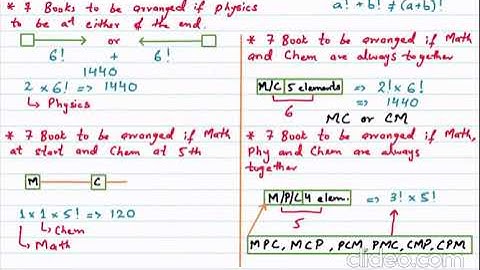 * 7 Books to be arranged if physics
to be at either of the end.
or
6! + 6!
1440
2 x 6! => 1440
Physics
* 7 Book to be arranged if Math
at start and Chem at 5th
M C
1 x 1 x 5! => 120
Chem
Math
a! + b! ≠ (a+b)!
* 7 Book to be arranged if Math
and Chem are always together
M/C 5 elements => 2! x 6!
6 => 1440
MC or CM
* 7 Book to be arranged if Math,
Phy and Chem are always
together
M/P/C 4 elem. => 3! x 5!
5
MPC, MCP, PCM, PMC, CMP, CPM
clideo.com